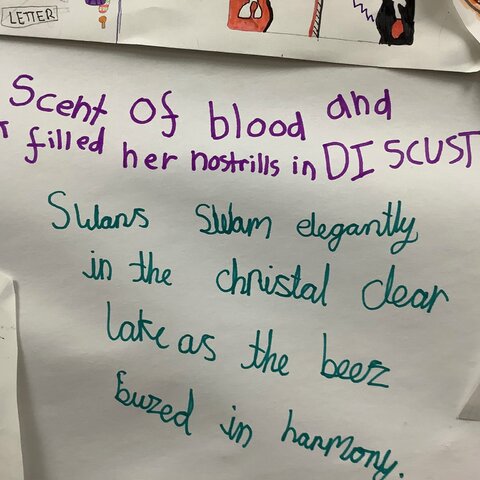 LETTER
Scent of blood and
filled her nostrills in DISCUST
Swans swam elegantly
in the christal clear
lake as the beez
buzed in harmony.